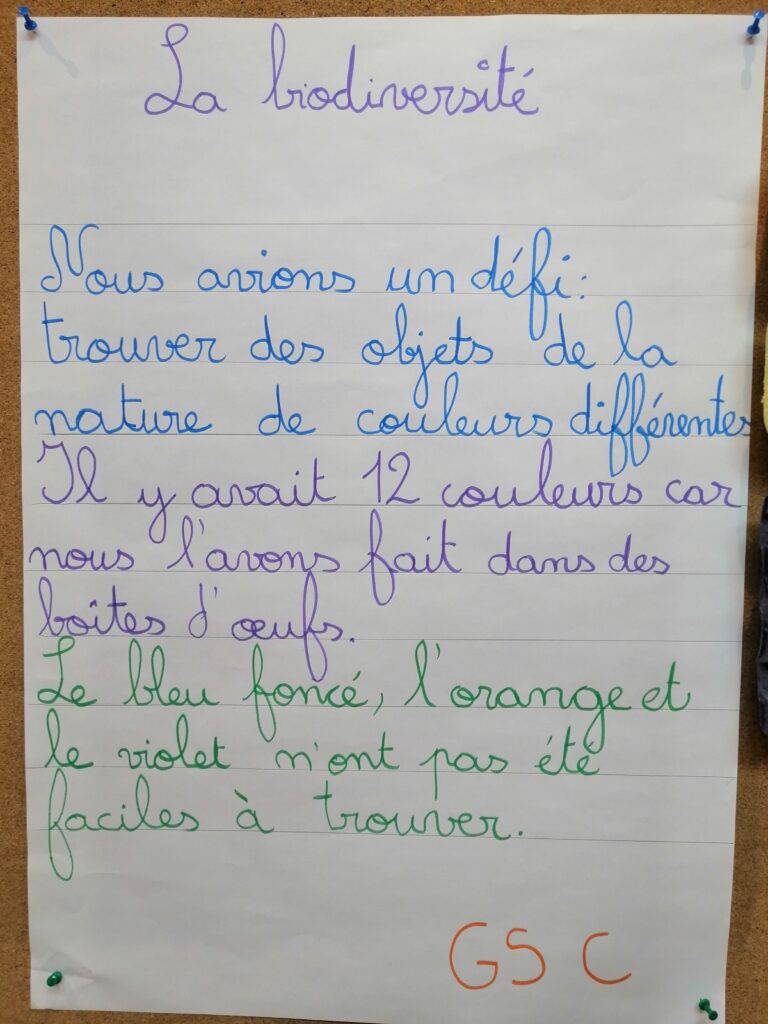 La biodiversité
Nous avions un défi:
trouver des objets de la
nature de couleurs différentes
Il y avait 12 couleurs car
nous l'avons fait dans des
boîtes d'œufs.
Le bleu foncé, l'orange et
le violet n'ont pas été
faciles à trouver.
GS C